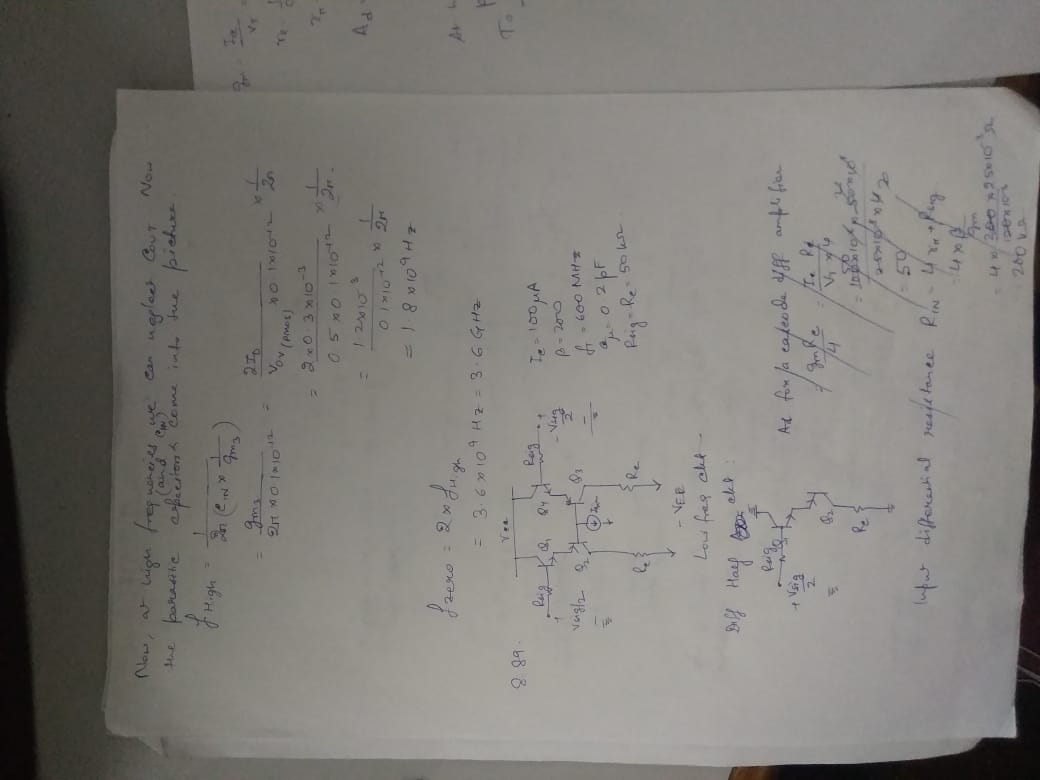 Now, at high frequencies we can neglect COUT Now
(and CIN)
the parasitic capacitors come into the picture.
fHigh = 1 / 2π (CIN × 1/gm3)
= gm3 / 2π × 0.1×10^-12 = 2ID / VOV(PMOS) × 0.1×10^-12 × 1/2π
= 2×0.3×10^-3 / 0.5×0.1×10^-12 × 1/2π.
= 1.2×10^-3 / 0.1×10^-12 × 1/2π
= 1.8×10^9 Hz
fzero = 2×fHigh
= 3.6×10^9 Hz = 3.6 GHz
8.89.
Vcc
Rsig
Q1
Q4
Rsig
+
Vsig/2
- Vsig/2
Q2
Q3
Rc
Rc
- VEE
Ic = 100μA
β = 200
fT = 600 MHz
Cμ = 0.2pF
Rsig = Rc = 50 kΩ
Low freq ckt
Diff Half ckt :
Rsig
Q1
+ Vsig/2
Q2
Rc
Ad for a cascode diff amplifier
= gmRc / 4 = Ic Rc / VT × 4
= 50
Input differential resistance RIN = 4 rπ + Rsig
= 4 × β / gm
200 kΩ